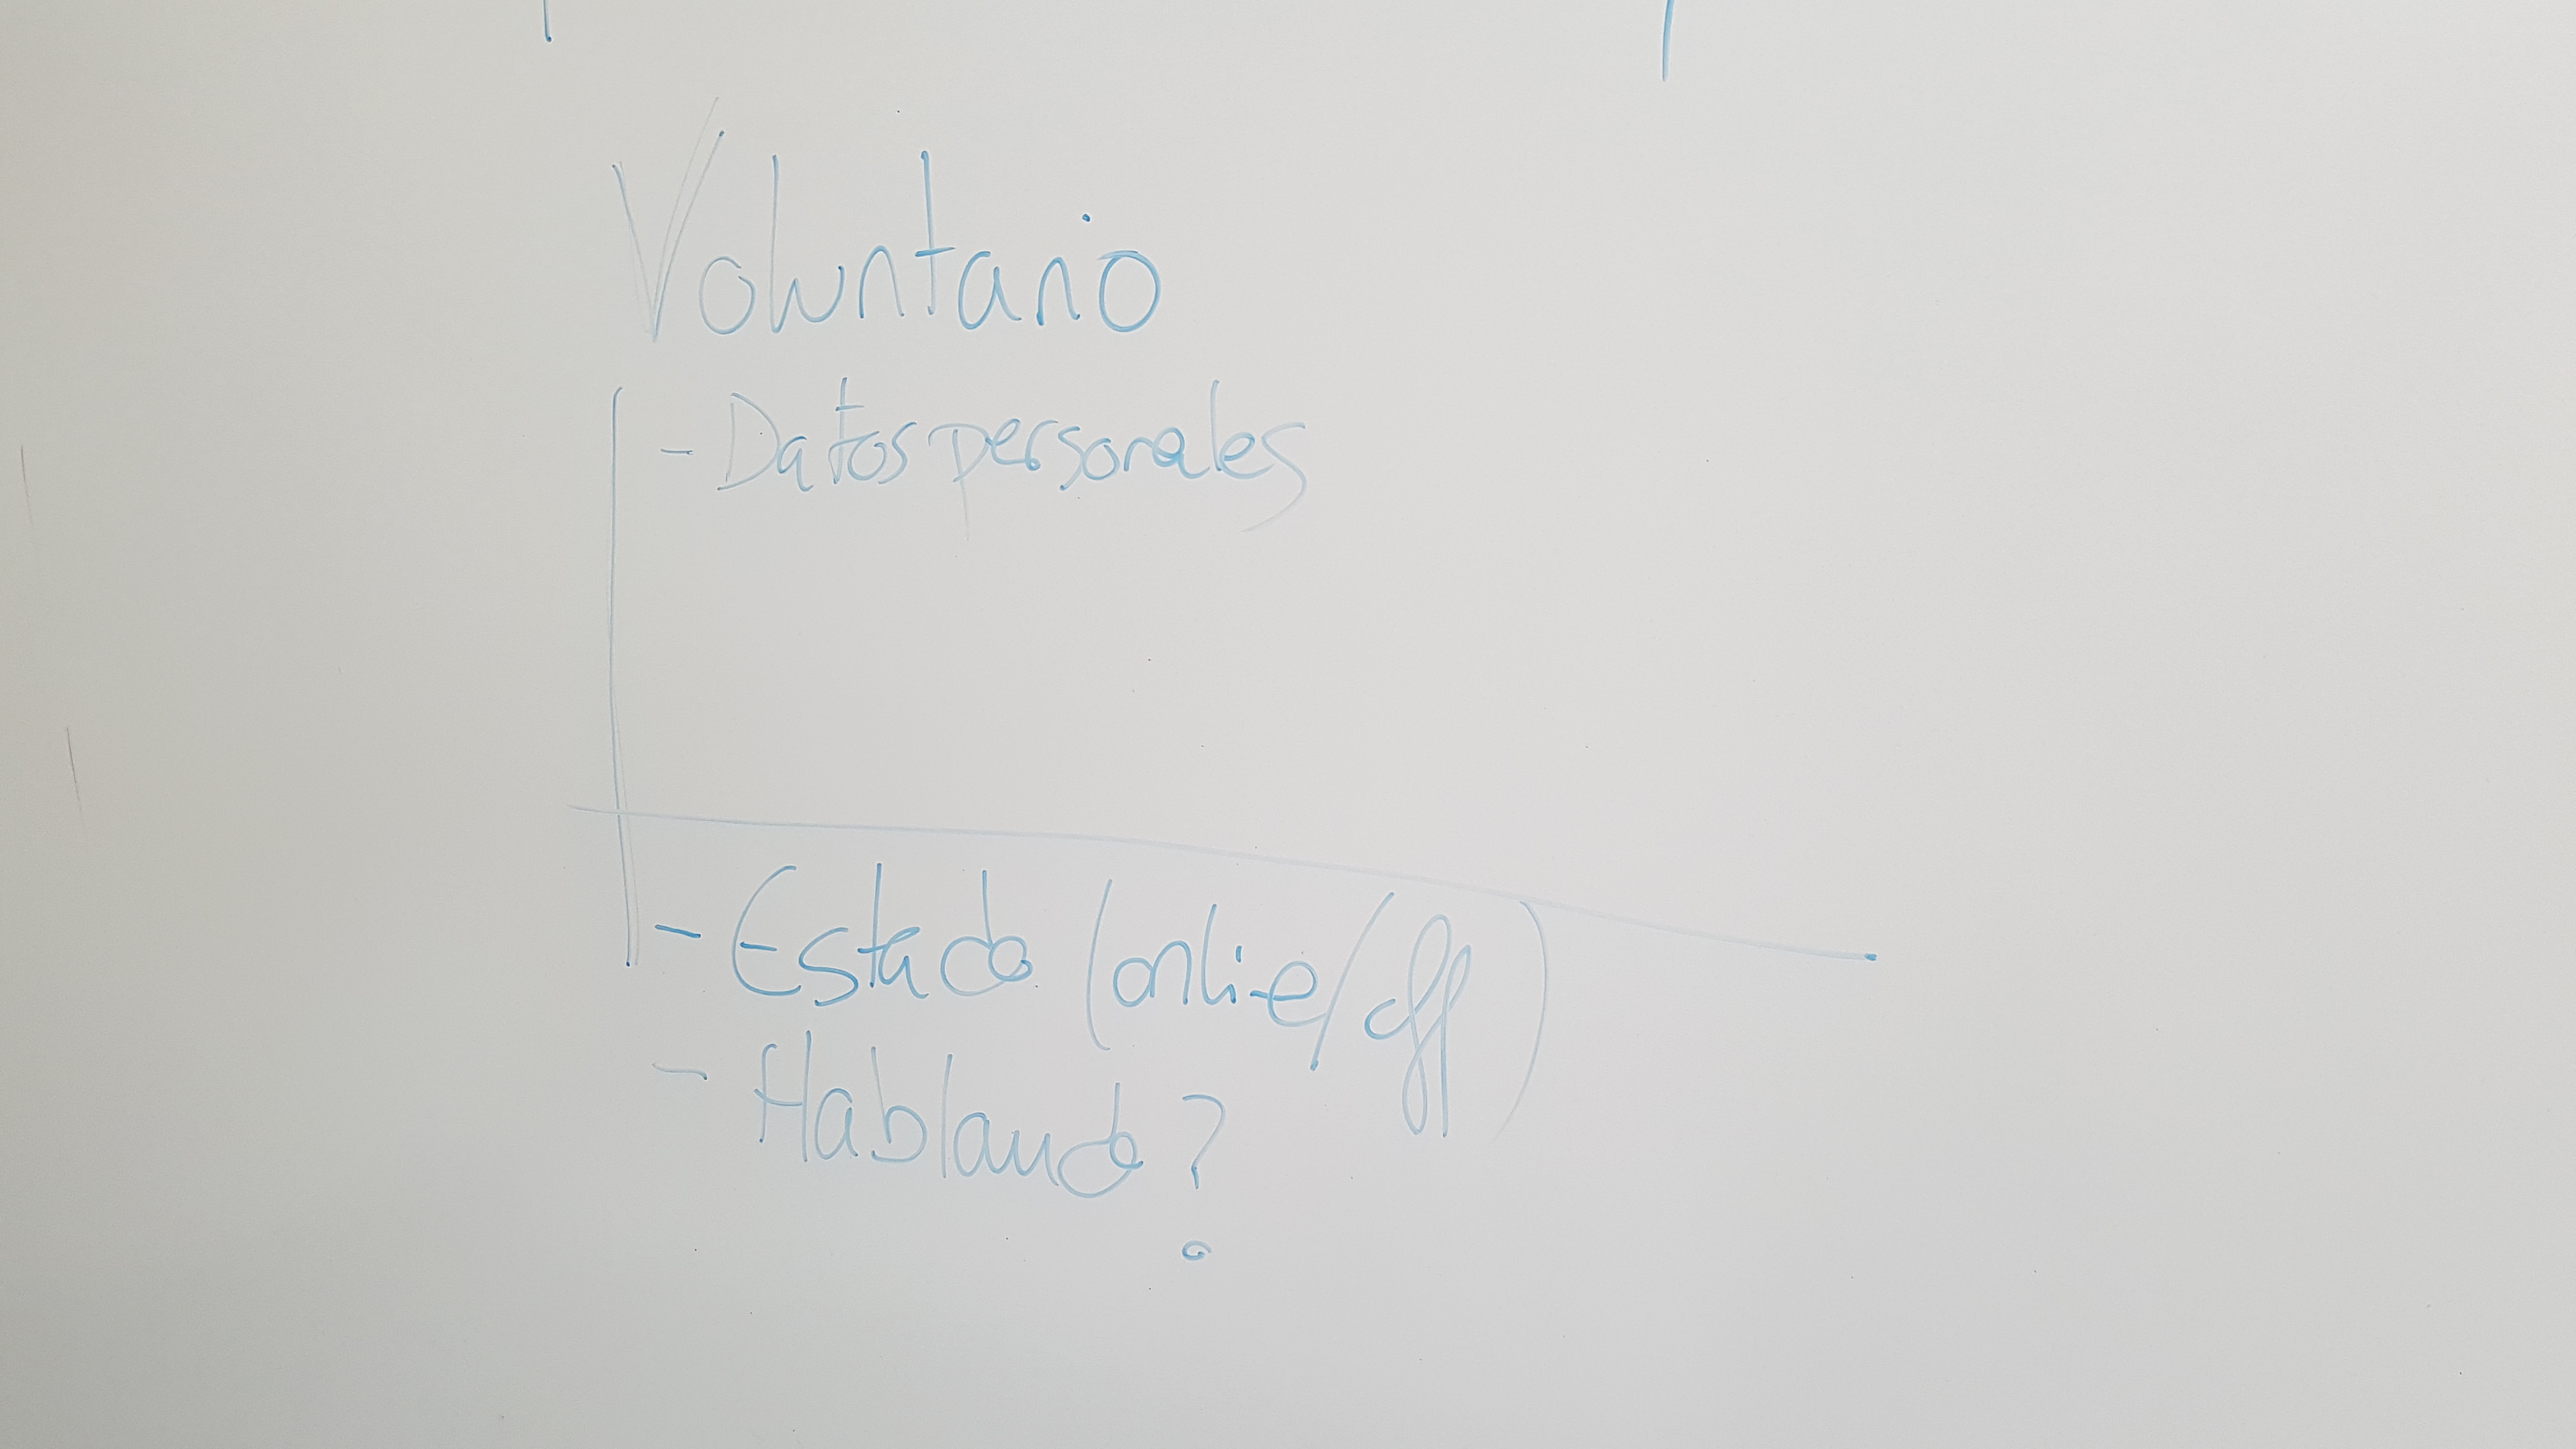 Voluntario
- Datos personales
- Estado (online/off)
- Hablando?